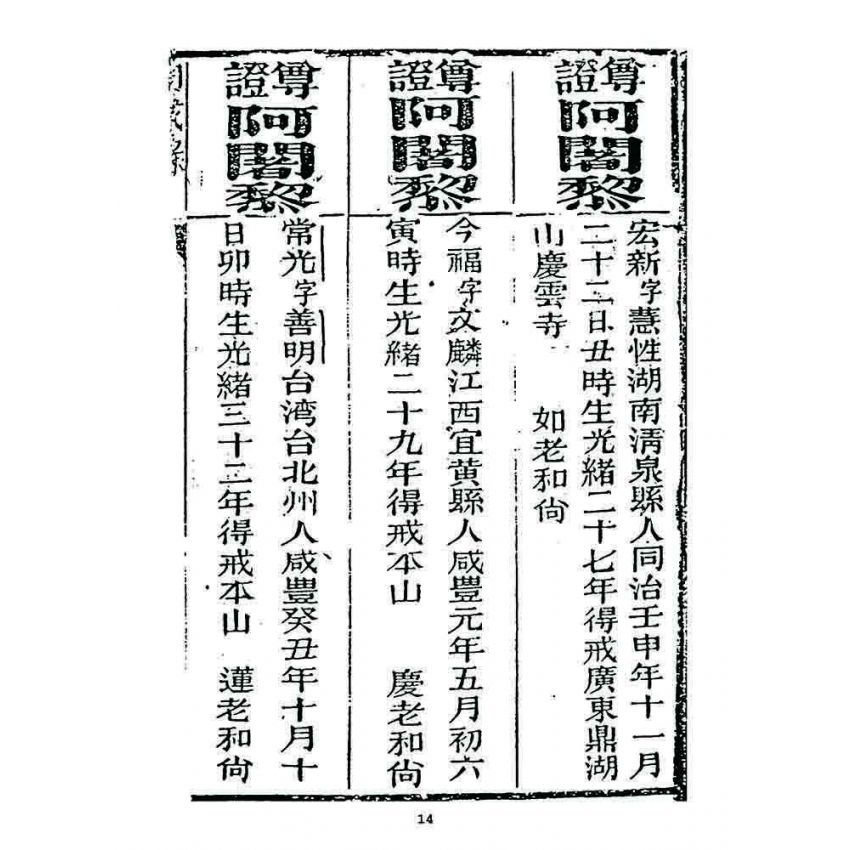 尊證阿闍黎
宏新字慧性湖南清泉縣人同治壬申年十一月
二十二日丑時生光緒二十七年得戒廣東鼎湖
山慶雲寺　如老和尙
尊證阿闍黎
今福字文麟江西宜黄縣人咸豐元年五月初六
寅時生光緒二十九年得戒本山　慶老和尙
尊證阿闍黎
常光字善明台湾台北州人咸豐癸丑年十月十
日卯時生光緒三十二年得戒本山　蓮老和尙
同戒錄
14